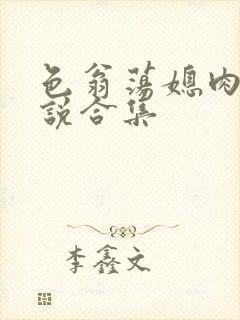 色翁荡媳肉
说合集
李鑫文